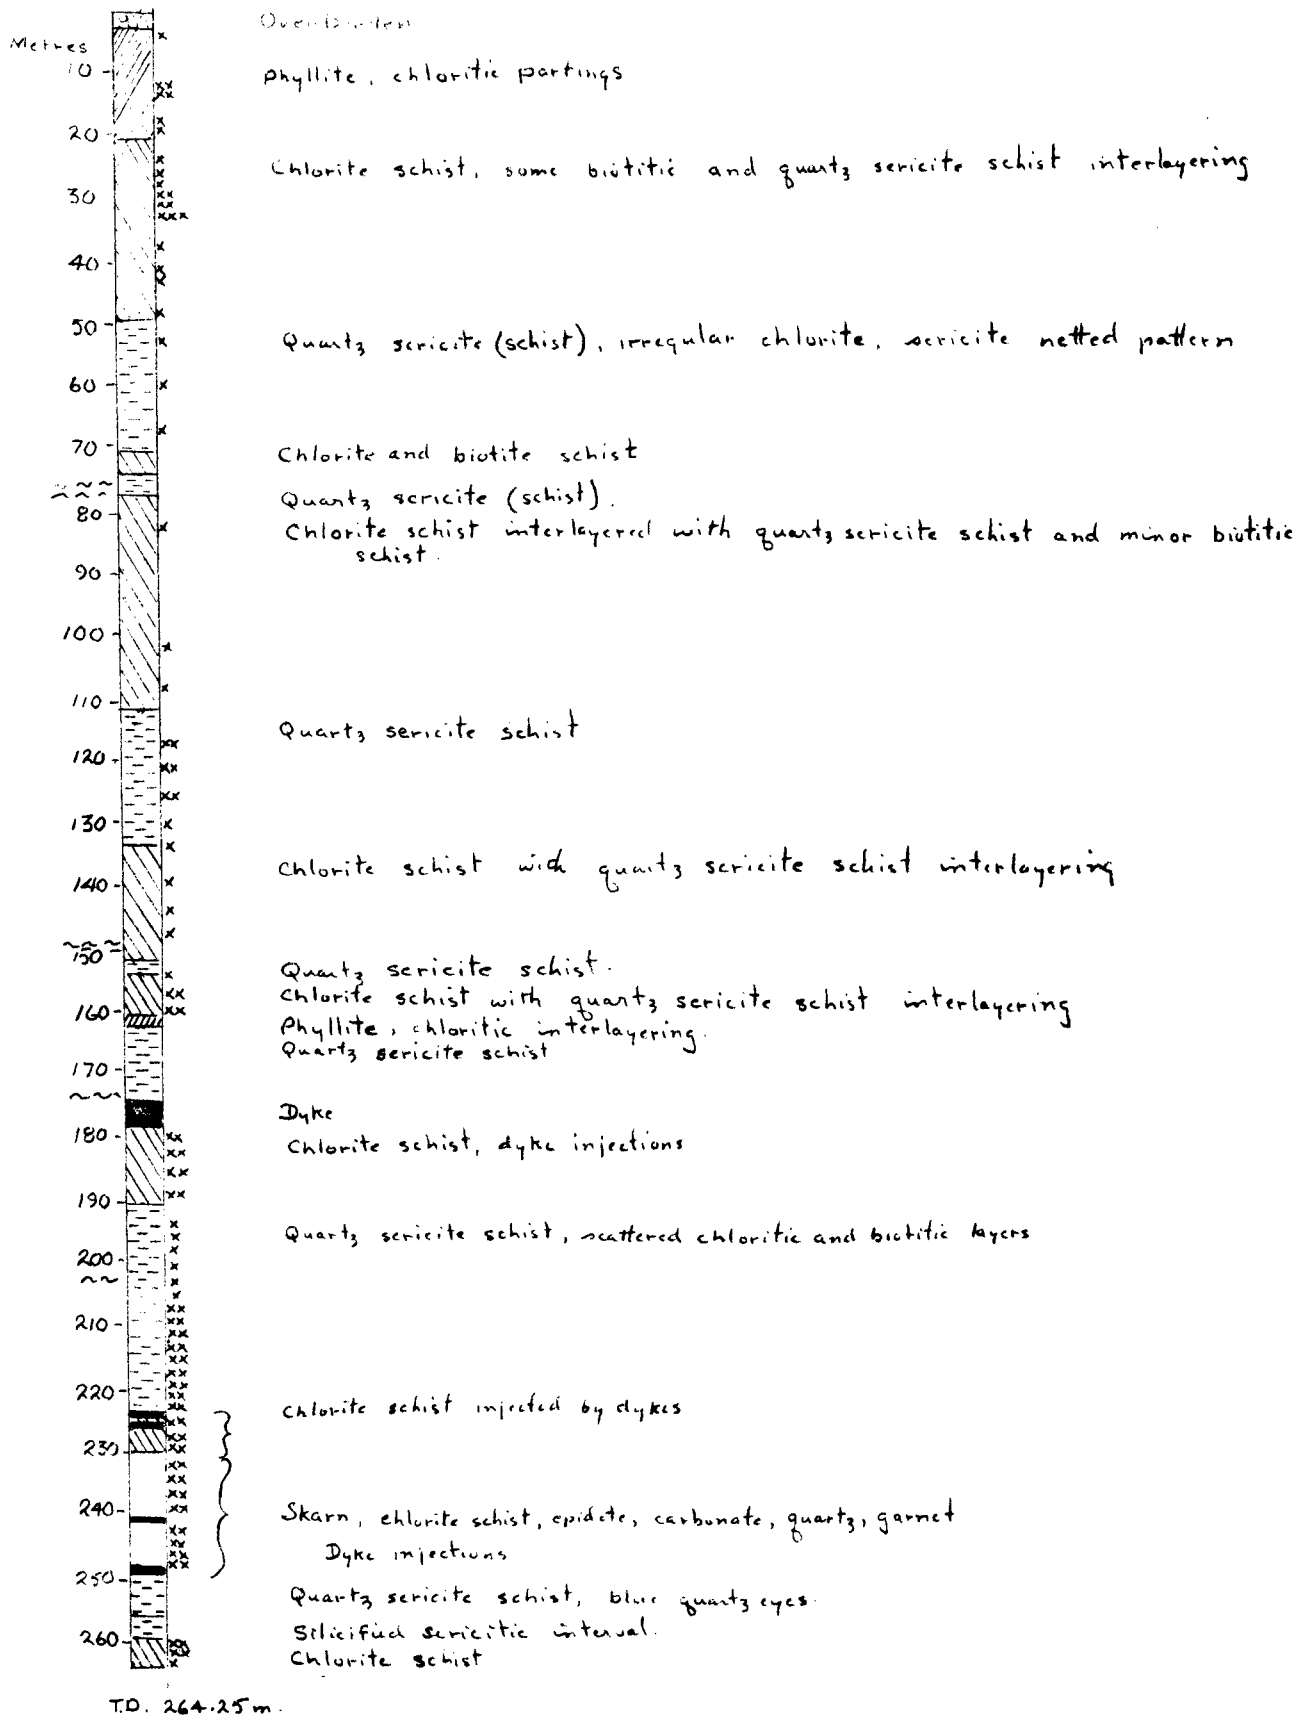 Overburden
Metres
10
Phyllite, chloritic partings
20
Chlorite schist, some biotitic and quartz sericite schist interlayering
30
40
50
Quartz sericite (schist), irregular chlorite, sericite netted pattern
60
70
Chlorite and biotite schist
Quartz sericite (schist).
80
Chlorite schist interlayered with quartz sericite schist and minor biotitic
schist.
90
100
110
Quartz sericite schist
120
130
Chlorite schist with quartz sericite schist interlayering
140
150
Quartz sericite schist.
Chlorite schist with quartz sericite schist interlayering
160
Phyllite, chloritic interlayering.
Quartz sericite schist
170
Dyke
180
Chlorite schist, dyke injections
190
Quartz sericite schist, scattered chloritic and biotitic layers
200
210
220
Chlorite schist injected by dykes
230
240
Skarn, chlorite schist, epidote, carbonate, quartz, garnet
Dyke injections
250
Quartz sericite schist, blue quartz eyes.
Silicified sericitic interval.
260
Chlorite schist
T.D. 264.25 m.